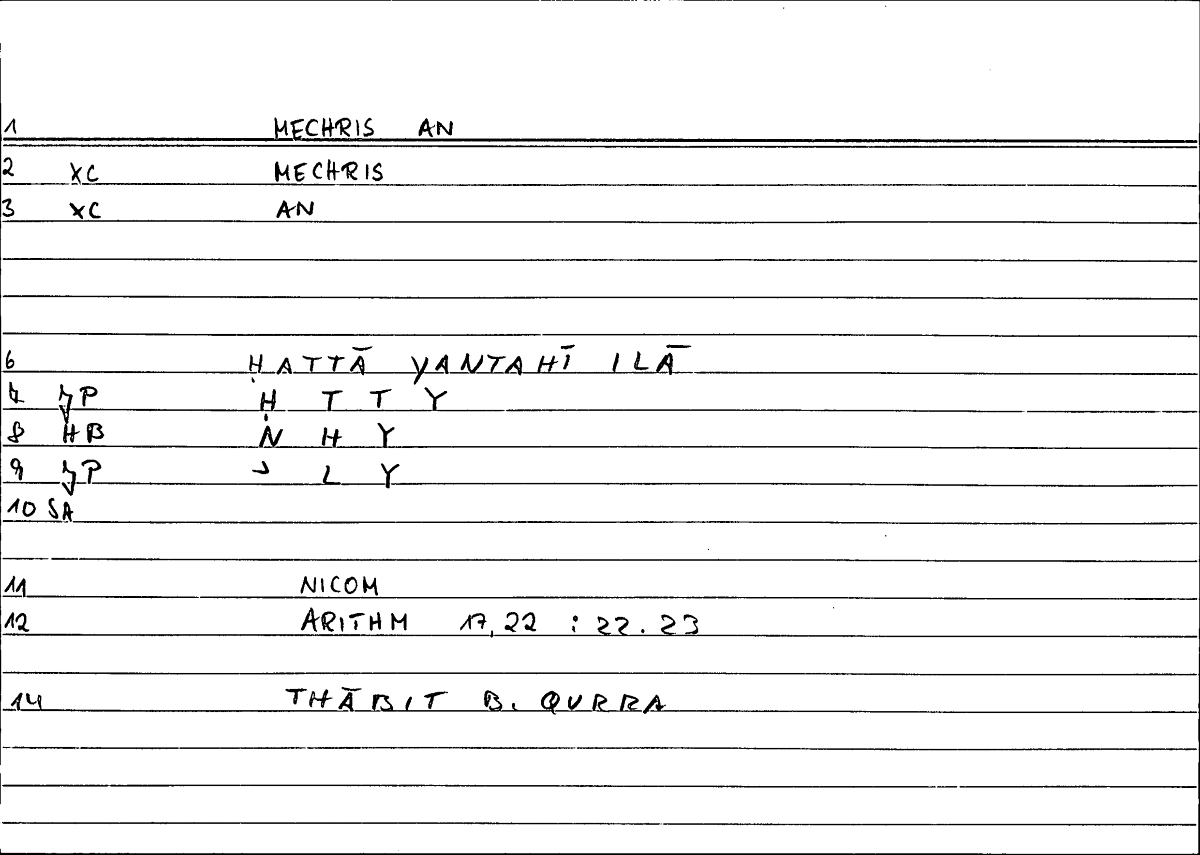 1 MECHRIS AN
2 XC MECHRIS
3 XC AN
6 ḤATTĀ YANTAHĪ ILĀ
7 P Ḥ T T Y
8 HB N H Y
9 P L Y
10 SA
11 NICOM
12 ARITHM 17,22 : 22.23
14 THĀBIT B. QURRA